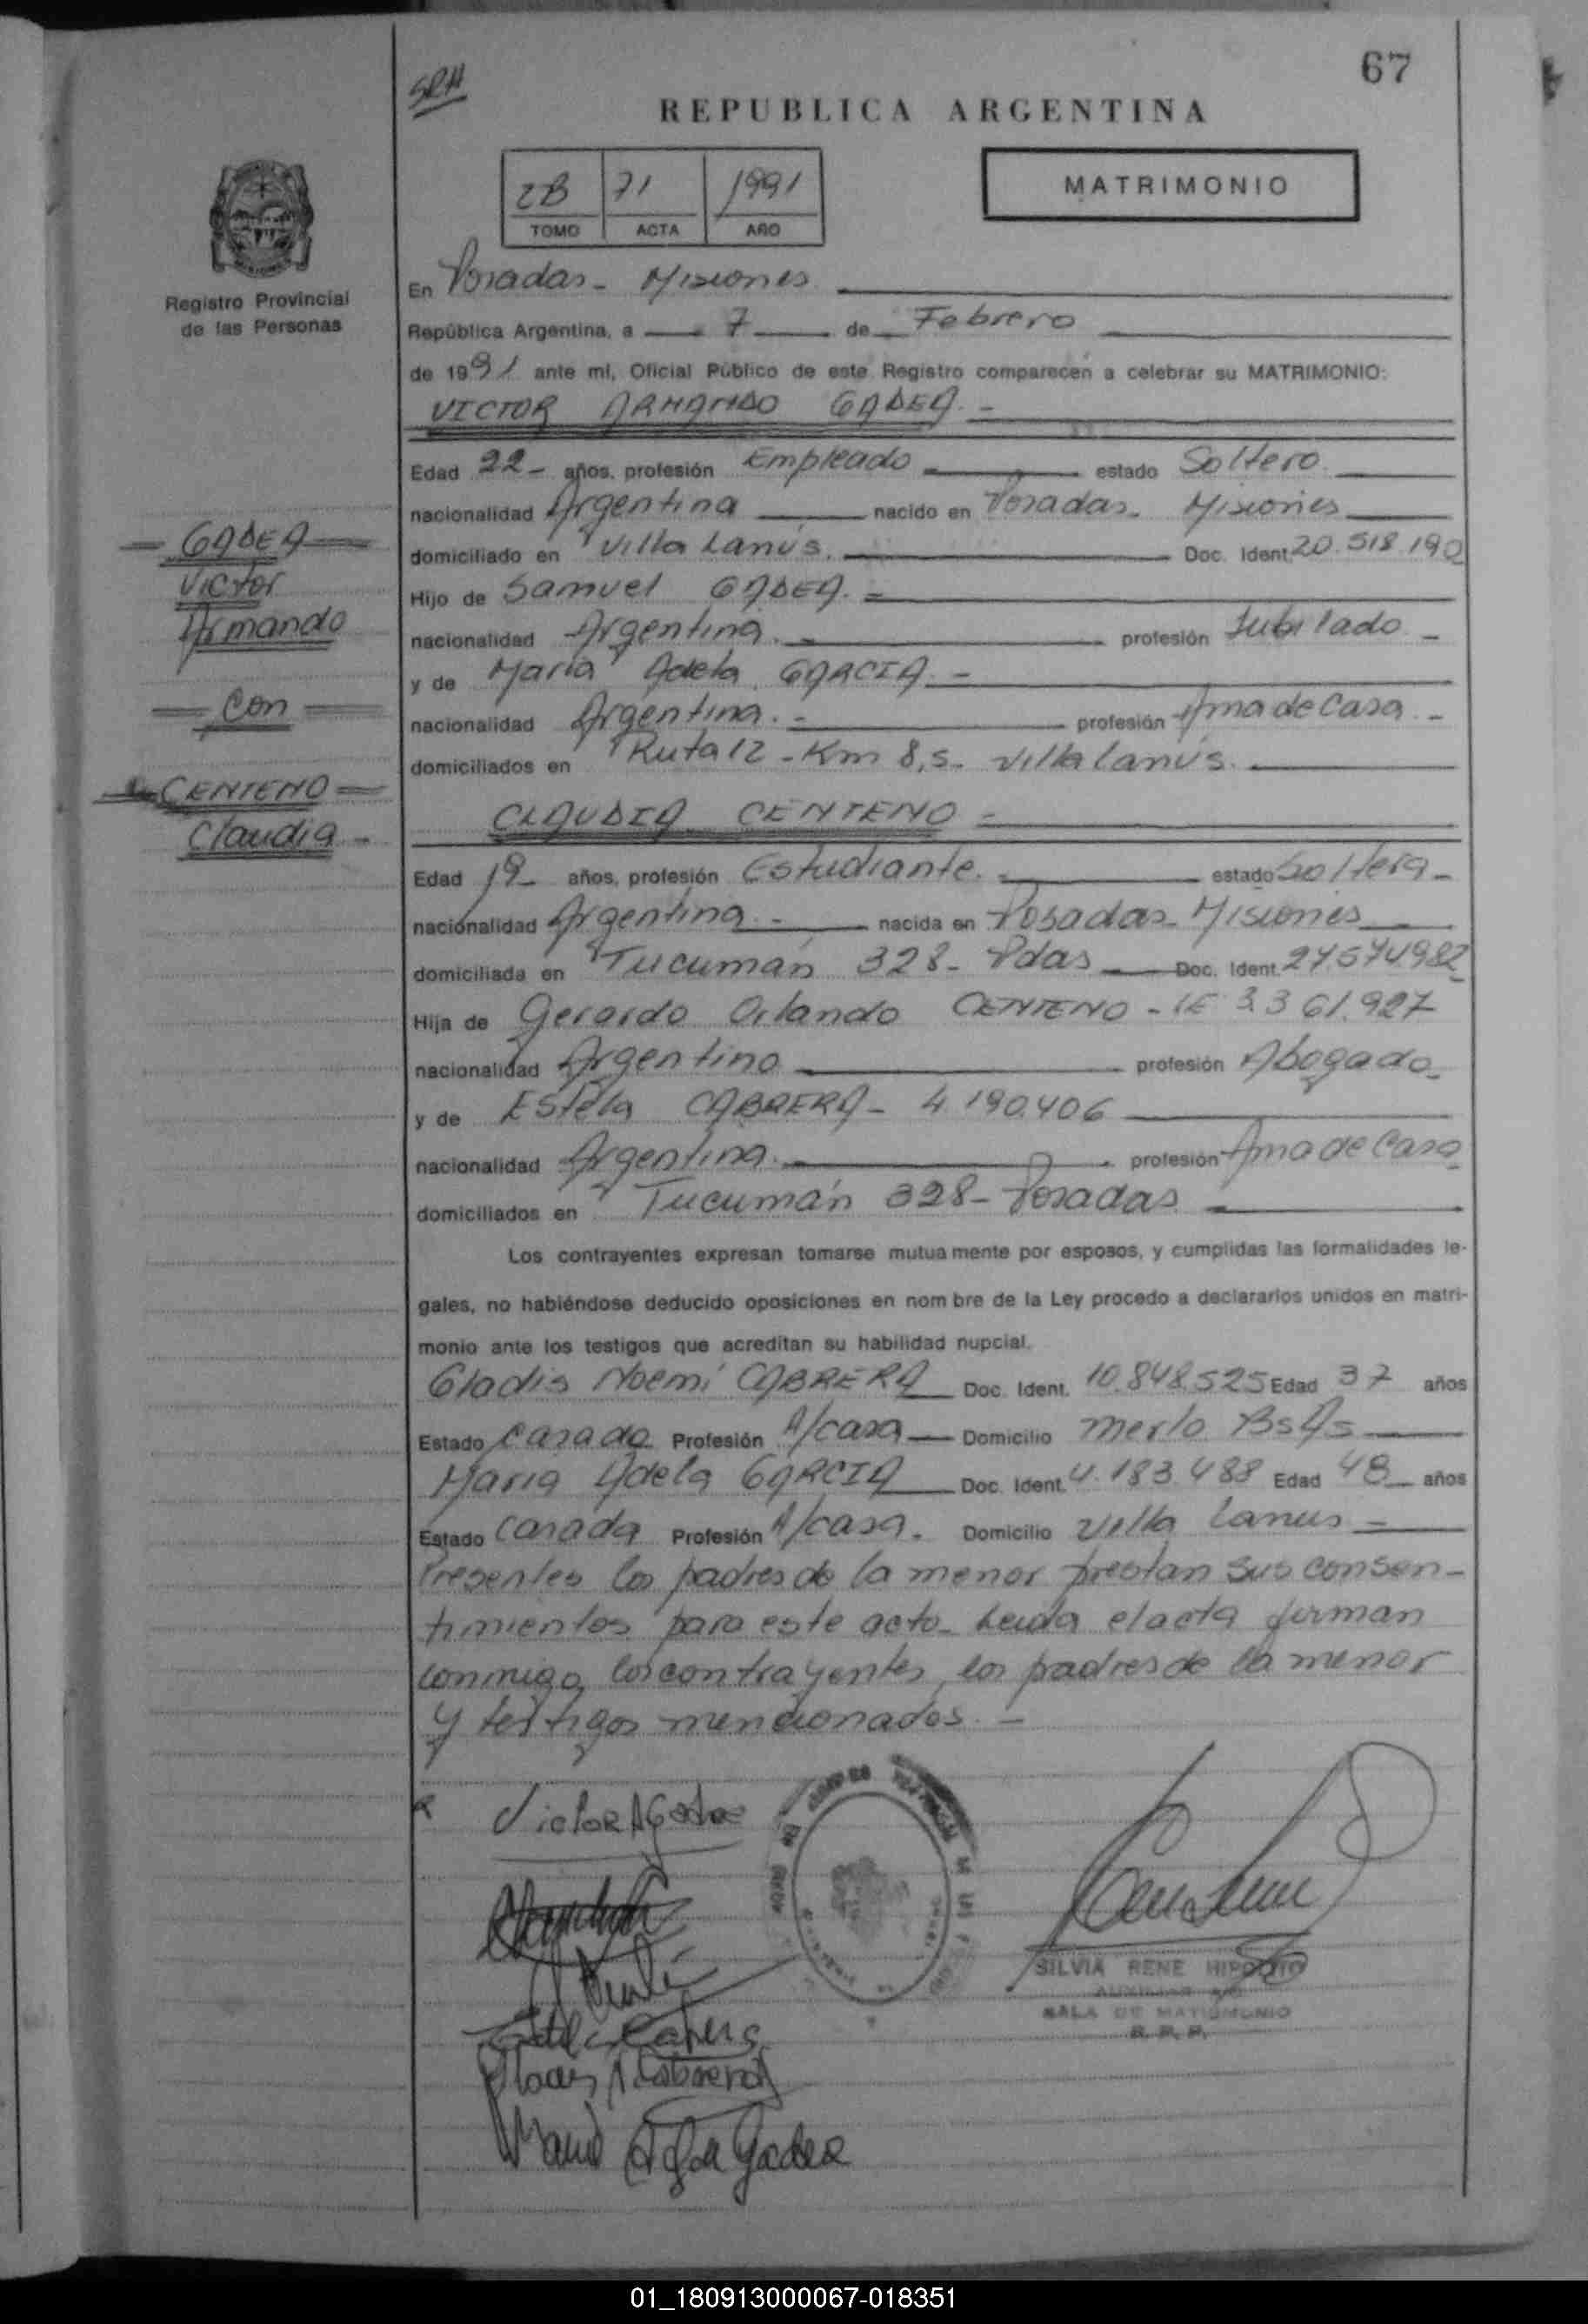 67
SRH
REPUBLICA ARGENTINA
2B 71 1991
TOMO ACTA AÑO
MATRIMONIO
Registro Provincial
de las Personas
En Posadas - Misiones
República Argentina, a 7 de Febrero
de 1991 ante mí, Oficial Público de este Registro comparecen a celebrar su MATRIMONIO:
VICTOR ARMANDO GADEA. -
Edad 22 - años, profesión Empleado estado Soltero.
nacionalidad Argentina nacido en Posadas - Misiones
domiciliado en Villa Lanús. Doc. Ident. 20.518.190
Hijo de Samuel GADEA. -
nacionalidad Argentina. - profesión Jubilado -
y de María Adela GARCIA. -
nacionalidad Argentina. - profesión Ama de Casa. -
domiciliados en Ruta 12 - Km 8,5 - Villa Lanús.
GADEA
Victor
Armando
Con
CENTENO
Claudia -
CLAUDIA CENTENO -
Edad 19 - años, profesión Estudiante. - estado Soltera -
nacionalidad Argentina. - nacida en Posadas - Misiones
domiciliada en Tucumán 328 - Pdas Doc. Ident. 27.574.982
Hija de Gerardo Orlando CENTENO - LE 3.361.927
nacionalidad Argentino profesión Abogado -
y de Estela CABRERA - 4.190.406
nacionalidad Argentina. profesión Ama de Casa
domiciliados en Tucumán 328 - Posadas
Los contrayentes expresan tomarse mutuamente por esposos, y cumplidas las formalidades le-
gales, no habiéndose deducido oposiciones en nombre de la Ley procedo a declararlos unidos en matri-
monio ante los testigos que acreditan su habilidad nupcial.
Gladis Noemí CABRERA Doc. Ident. 10.848.525 Edad 37 años
Estado Casada Profesión A/casa Domicilio Merlo BsAs
Maria Adela GARCIA Doc. Ident. 4.183.488 Edad 48 años
Estado Casada Profesión A/casa. Domicilio Villa Lanus -
Presentes los padres de la menor prestan sus consen-
timientos para este acto - Leída el acta firman
conmigo, los contrayentes, los padres de la menor
y testigos mencionados. -
Victor A Gadea
Estela Cabrera
Maria Adela Gadea
SILVIA RENE HIPOLITO
AUXILIAR
SALA DE MATRIMONIO
R. P. P.
01_180913000067-018351